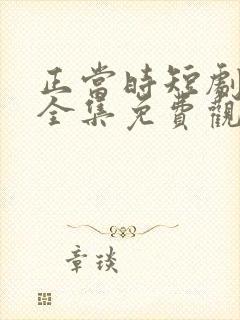 正當時短劇
全集免費觀
章琰